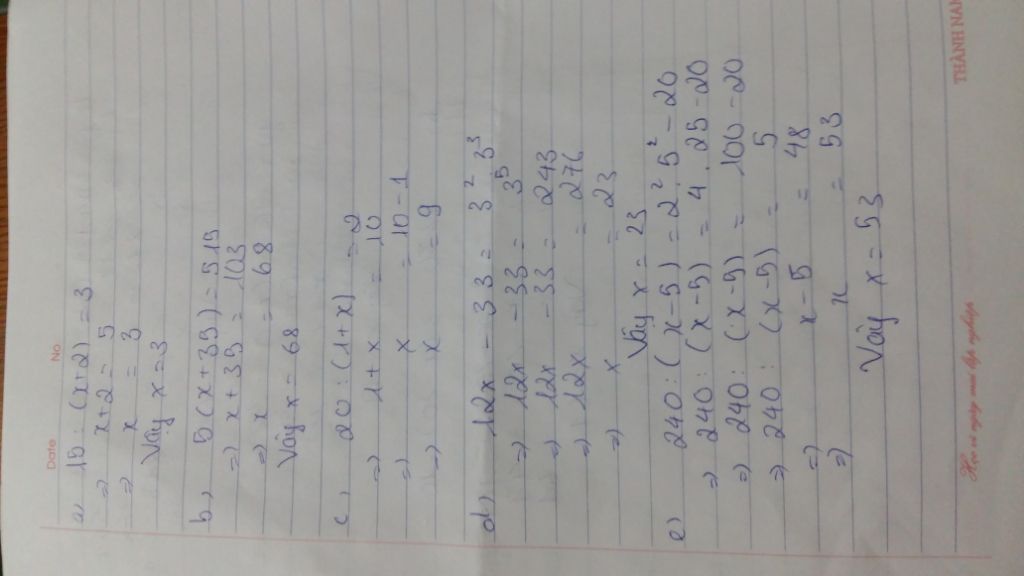 Date No
a) 15 : (x+2) = 3
=> x+2 = 5
=> x = 3
Vậy x=3
b, 5(x+35) = 515
=> x+35 = 103
=> x = 68
Vậy x = 68
c, 20 : (1+x) = 2
=> 1+x = 10
=> x = 10 - 1
=> x = 9
d) 12x - 33 = 3² . 3³
=> 12x - 33 = 3⁵
=> 12x - 33 = 243
=> 12x = 276
=> x = 23
Vậy x = 23
e) 240 : (x-5) = 2² . 5² - 20
=> 240 : (x-5) = 4 . 25 - 20
=> 240 : (x-5) = 100 - 20
=> 240 : (x-5) = 5
=> x-5 = 48
=> x = 53
Vậy x = 53
Học vì ngày mai lập nghiệp